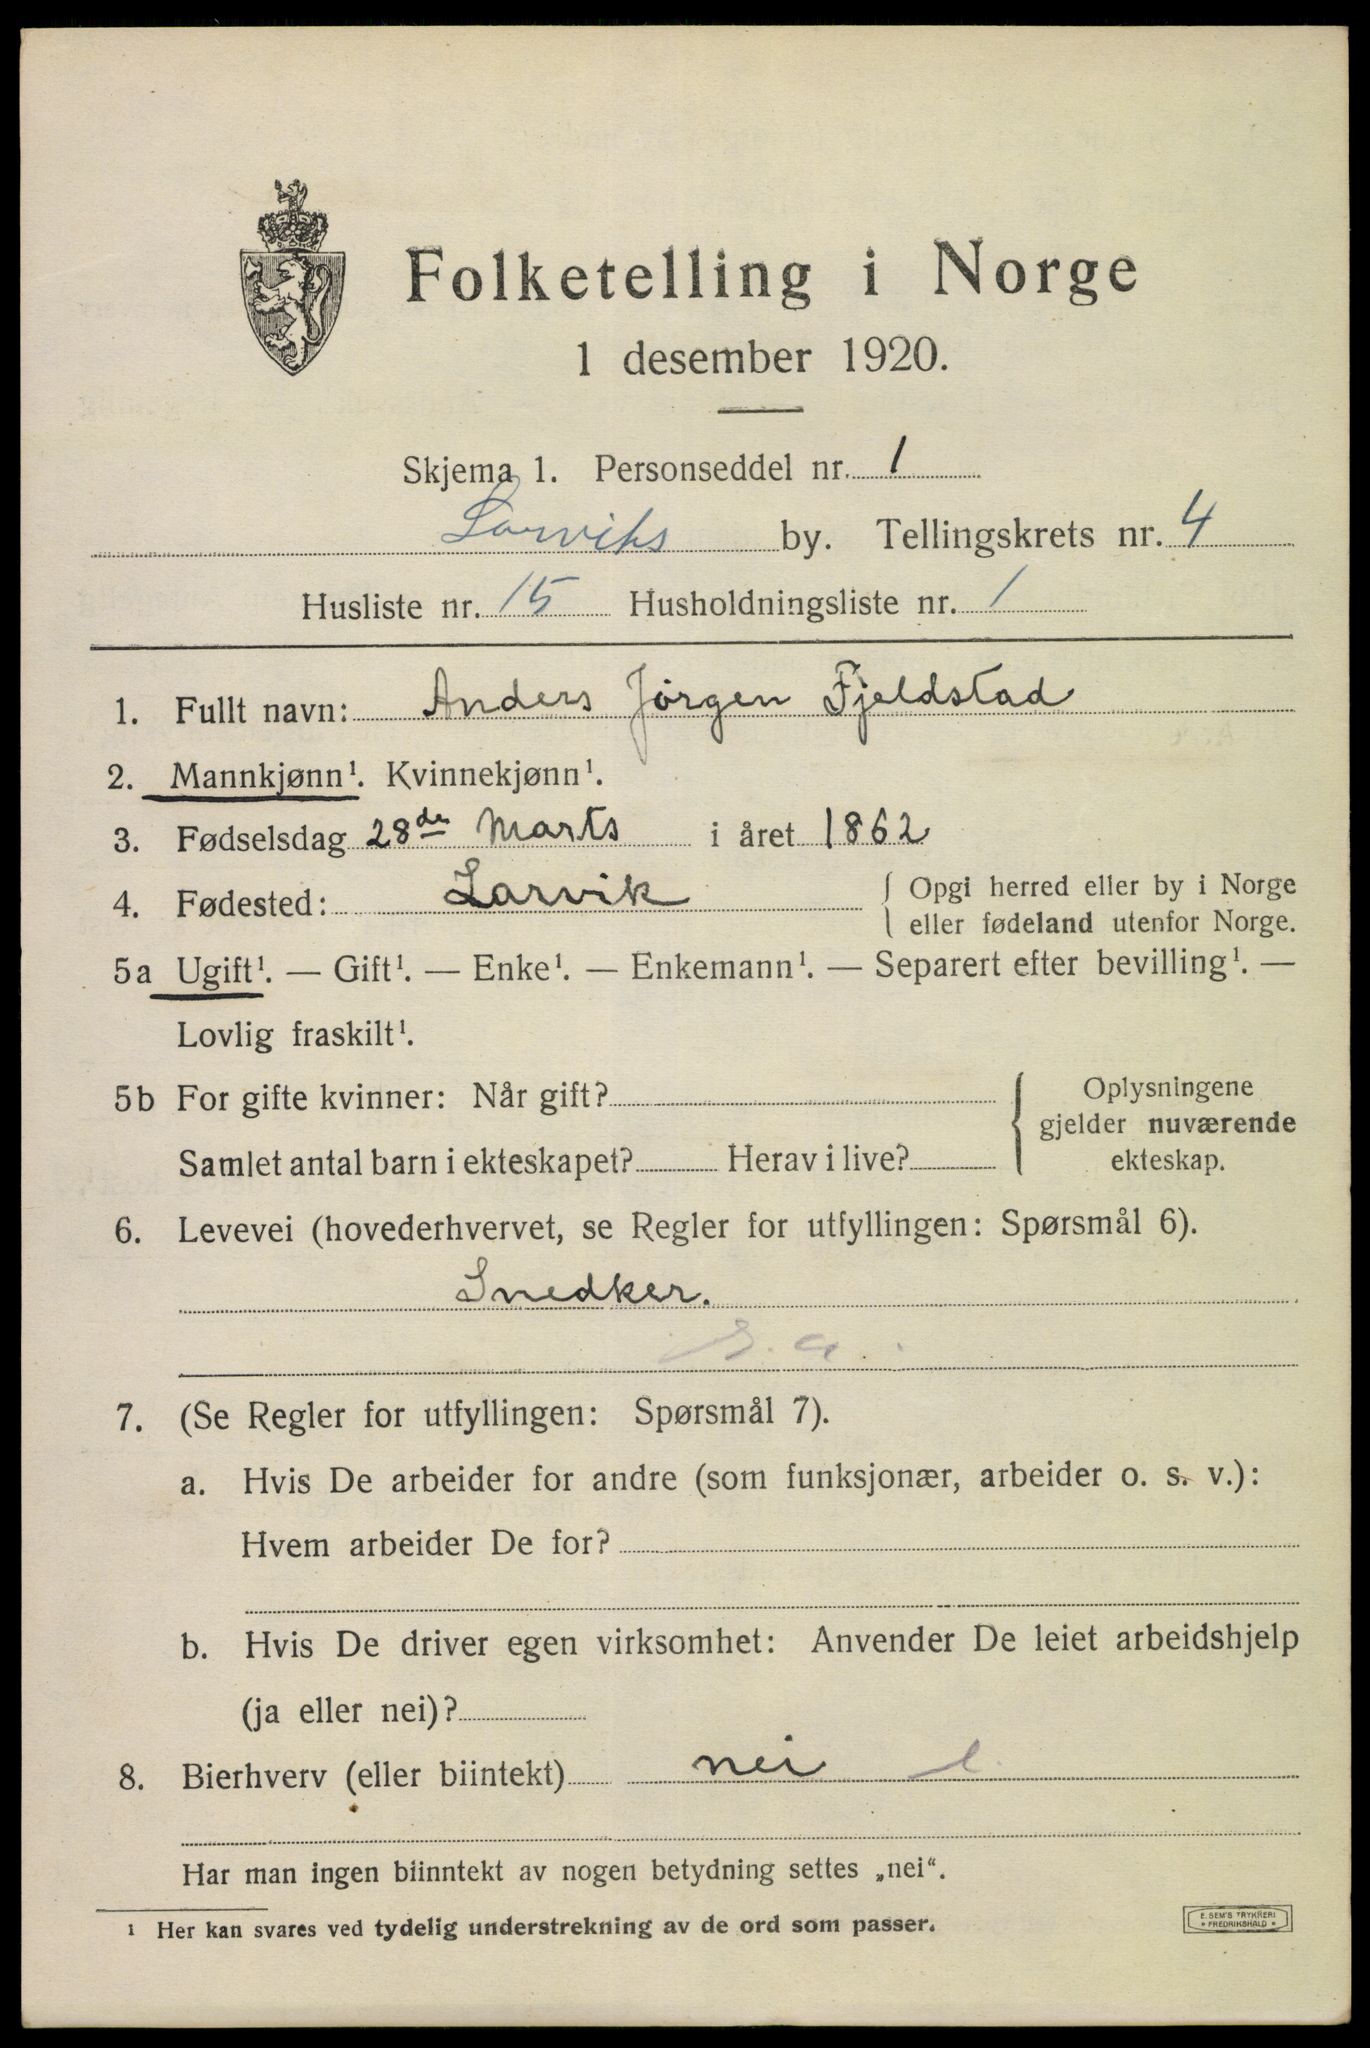 Folketelling i Norge
1 desember 1920.
Skjema 1. Personseddel nr. 1
Larviks by. Tellingskrets nr. 4
Husliste nr. 15 Husholdningsliste nr. 1
1. Fullt navn: Anders Jörgen Fjeldstad
2. Mannkjønn¹. Kvinnekjønn¹.
3. Fødselsdag 28de Marts i året 1862
4. Fødested: Larvik { Opgi herred eller by i Norge
eller fødeland utenfor Norge.
5a Ugift¹. — Gift¹. — Enke¹. — Enkemann¹. — Separert efter bevilling¹. —
Lovlig fraskilt¹.
5b For gifte kvinner: Når gift?
Samlet antal barn i ekteskapet? Herav i live?
{ Oplysningene
gjelder nuværende
ekteskap.
6. Levevei (hovederhvervet, se Regler for utfyllingen: Spørsmål 6).
Snedker.
7. (Se Regler for utfyllingen: Spørsmål 7).
a. Hvis De arbeider for andre (som funksjonær, arbeider o. s. v.):
Hvem arbeider De for?
b. Hvis De driver egen virksomhet: Anvender De leiet arbeidshjelp
(ja eller nei)?
8. Bierhverv (eller biintekt) nei
Har man ingen biinntekt av nogen betydning settes „nei“.
¹ Her kan svares ved tydelig understrekning av de ord som passer.
E. SEM'S TRYKKERI
* FREDRIKSHALD *